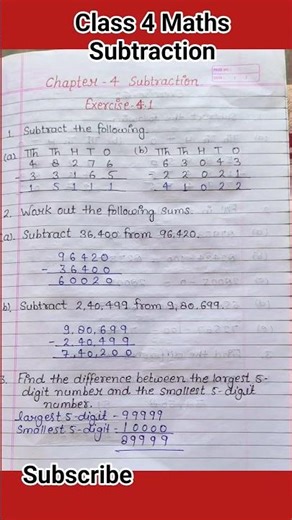 Class 4 Maths
Subtraction
Chapter - 4 Subtraction
Exercise - 4.1
1. Subtract the following.
(a) TTh Th H T O (b) TTh Th H T O
4 8 2 7 6 6 3 0 4 3
- 3 3 1 6 5 - 2 2 0 2 1
1 5 1 1 1 4 1 0 2 2
2. Work out the following sums.
(a). Subtract 36,400 from 96,420.
96420
- 36400
60020
b). Subtract 2,40,499 from 9,80,699.
9,80,699
- 2,40,499
7,40,200
3. Find the difference between the largest 5-
digit number and the smallest 5-digit
number.
largest 5-digit - 99999
Smallest 5-digit - 10000
89999
Subscribe